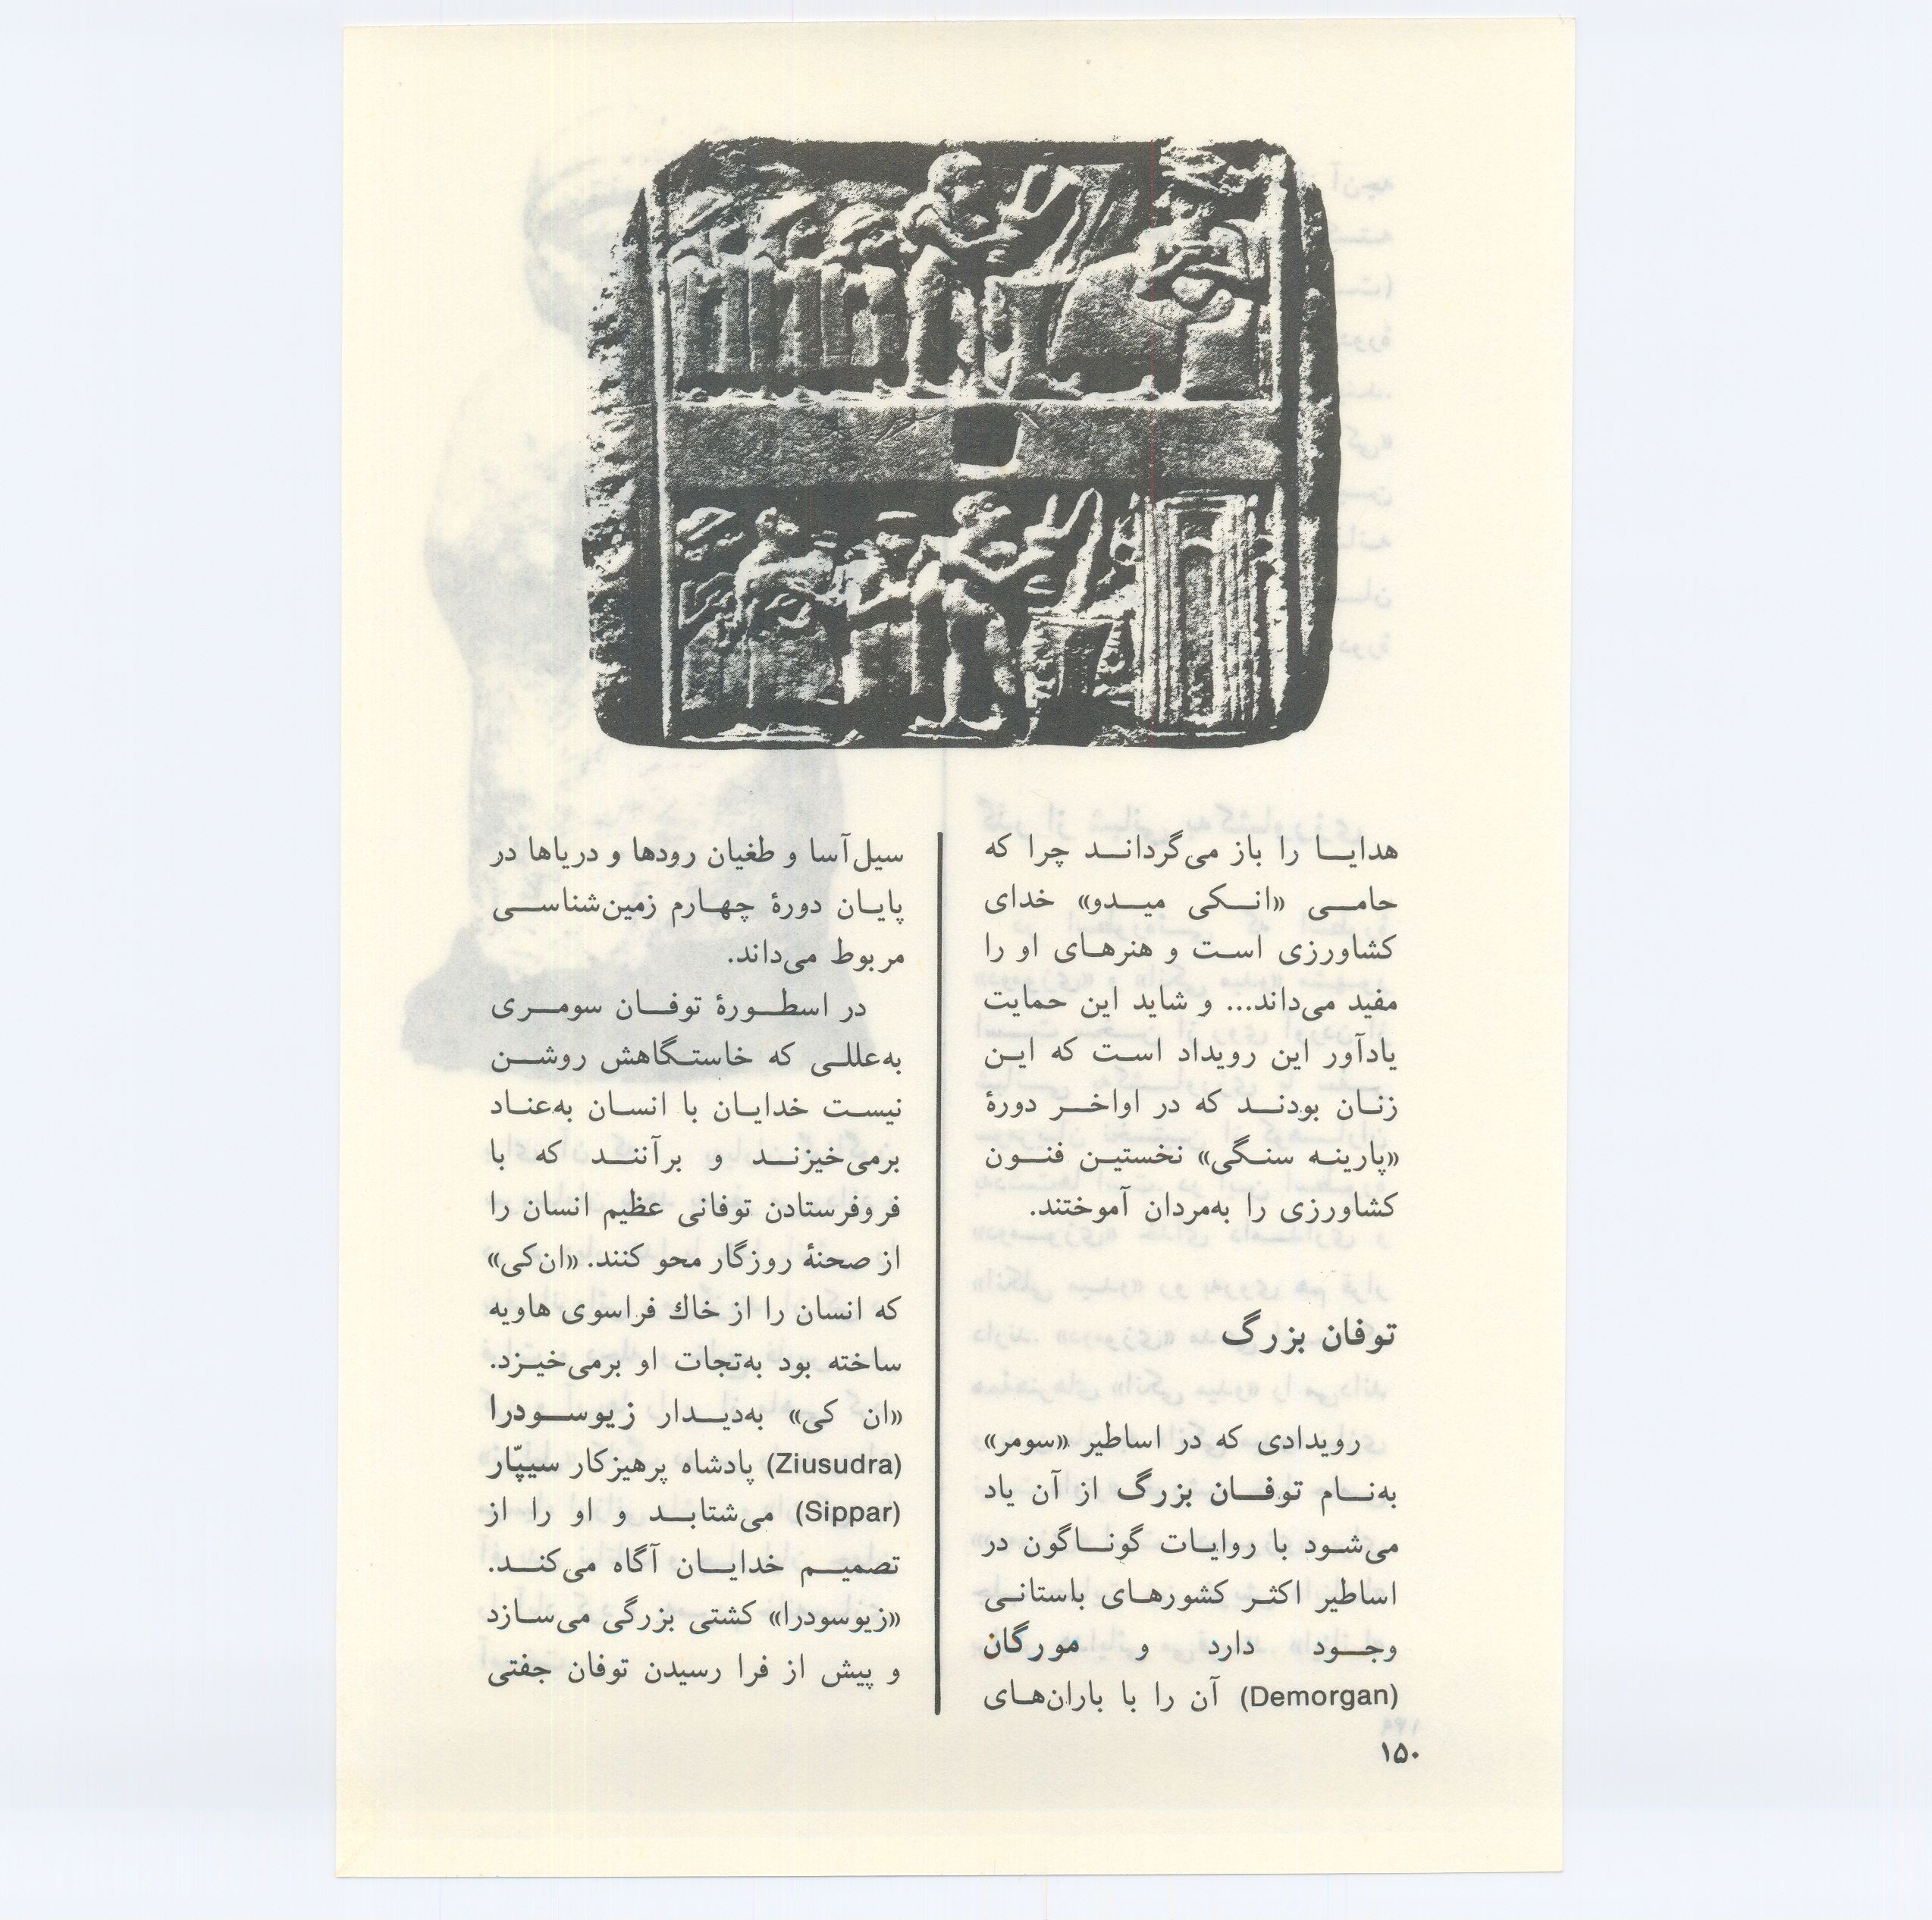 هدایـــا را باز می‌گردانـــد چرا که
حامـــی «انـــکی میـــدو» خدای
کشاورزی اسـت و هنرهـای او را
مفید می‌داند... و شاید این حمایت
یادآور این رویداد اسـت که ایـن
زنـان بودنـــد که در اواخـــر دورهٔ
«پارینـه سنـگی» نخستیـن فنـــون
کشاورزی را به‌مردان آموختند.
توفان بزرگ
رویدادی که در اساطیر «سومر»
به‌نـــام توفـــان بزرگ از آن یاد
می‌شـود با روایـات گونـــاگون در
اساطیر اکثـر کشورهـای باستانـی
وجـــود دارد و مورگان
(Demorgan) آن را با باران‌هـای
سیل‌آسا و طغیان رودها و دریاها در
پایـان دورهٔ چهـارم زمین‌شناســـی
مربوط می‌داند.
در اسطـــورهٔ توفـــان سومـــری
به‌عللـــی که خاستـگاهش روشـــن
نیسـت خدایـان با انسـان به‌عنـاد
برمی‌خیزنـــد و برآننـــد که با
فروفرستادن توفانی عظیم انسان را
از صحنهٔ روزگار محو کنند. «ان‌کی»
که انسان را از خاك فراسوی هاویه
ساخته بود به‌تجات او برمی‌خیـزد.
«ان کی» به‌دیـــدار زیوســـودرا
(Ziusudra) پادشاه پرهیزکار سیپّار
(Sippar) می‌شتابـــد و او را از
تصمیـــم خدایـــان آگاه می‌کنـــد.
«زیوسودرا» کشتی بزرگی می‌سـازد
و پیش از فرا رسیدن توفان جفتی
۱۵۰